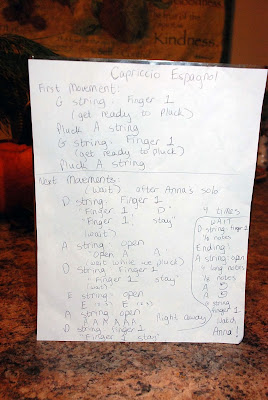 Kindness.
Capriccio Espagnol
First Movement:
G string: Finger 1
(get ready to pluck)
Pluck A string
G string: Finger 1
(get ready to pluck)
Pluck A string
Next Movements:
(Wait) after Anna's solo
D string: Finger 1
"Finger 1 D"
"Finger 1, stay"
(wait)
A string: open
"Open A A
(wait while we pluck)
D string: Finger 1
"Finger 1 stay"
(wait)
E string: open
A string: open
A A A A A A
D string: finger 1
"Finger 1 stay"
Right away
4 TIMES
WAIT
D string: finger 1
Ending:
A string: open
long notes
notes
string
finger 1
Wait,
Anna!